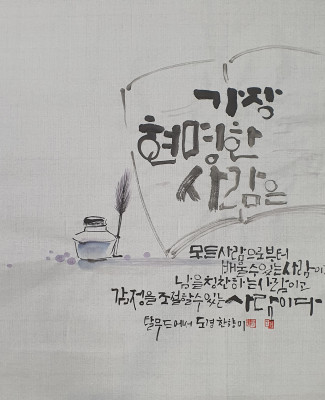 가장
현명한
사람은
모든사람으로부터
배울수있는사람이고
남을칭찬하는사람이고
감정을조절할수있는사람이다
탈무드에서 도경 한향미